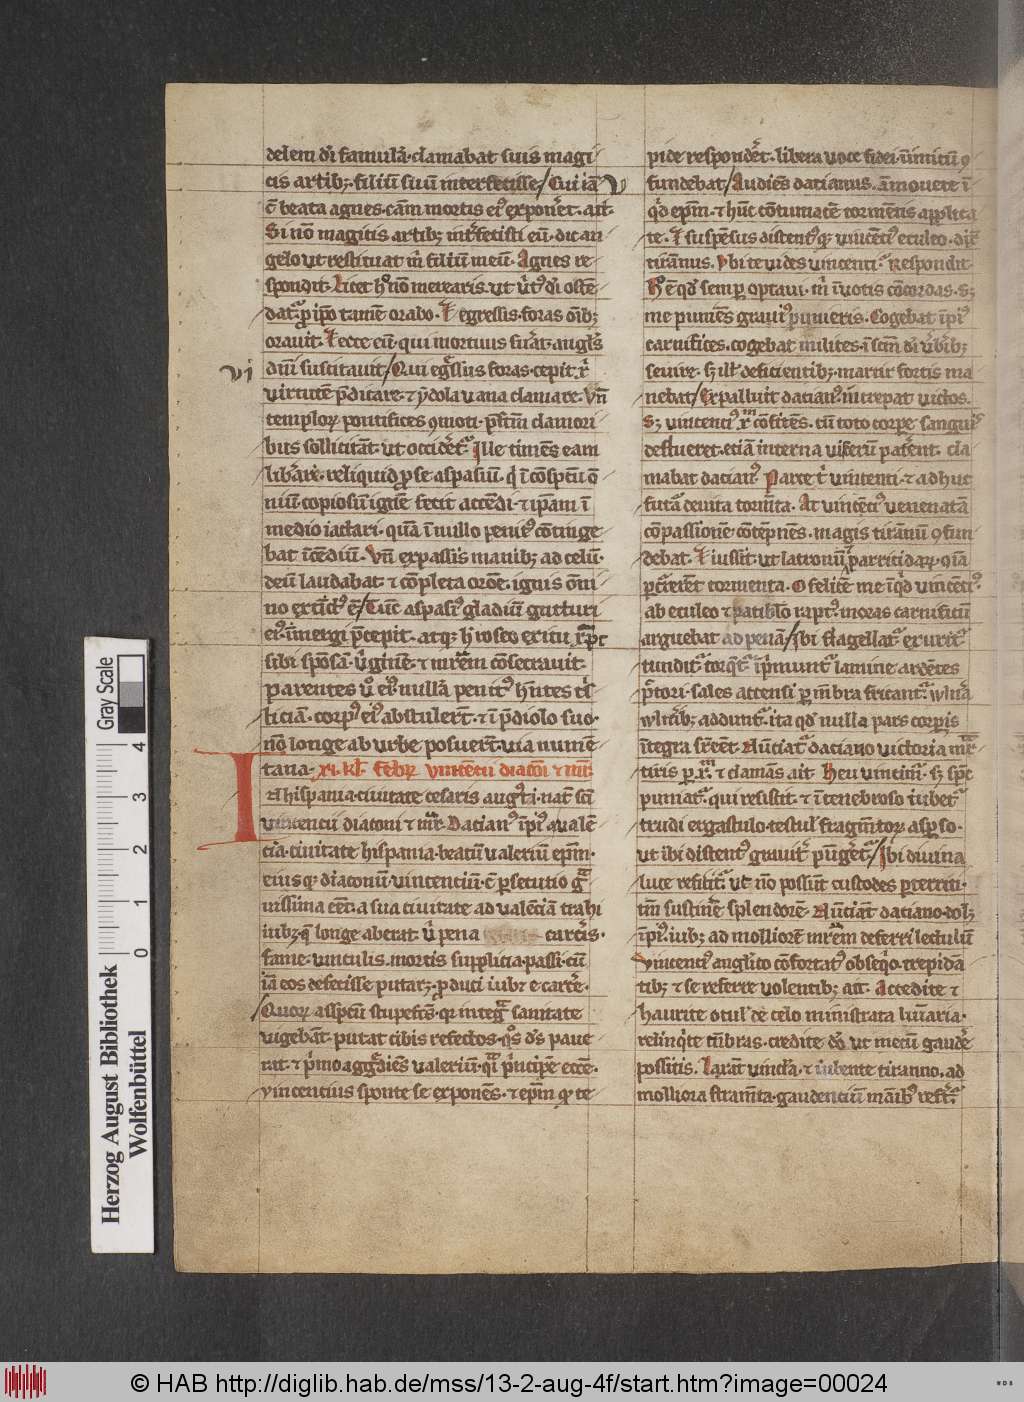 delem dn̄i famulā· clamabat suis magi
cis artibꝫ· filiū suū interfecisse/ Cui iā V
c̄ beata agnes· cām mortis eiꝰ exponeret· ait·
Si nō magicis artibꝫ int̄fecisti eū· dic an
gelo ut restituat m̄ filiū meū· Agnes re
spondit· Licet h̄ nō merearis· ut
dat̄ ip̄o tamē orabo· egressis foras om̄ibꝫ
orauit· Et ecce eū· qui mortuus fu̅at· angl̄s
vi dn̄i suscitauit/ Qui eg̃ssus foras· cepit
virtutē p̄dicare· et ydola vana clamare· Vn̄
templorꝝ pontifices ꝯmoti· clamori
bus sollicitāt· ut occid̄et· Ille timēs eam
lib̄are· reliquid ꝓ se aspasiū· q̄ i ꝯspc̄u o
niū· copiosū ignē fecit accēdi· et ip̄am ī
medio iactari· quā ī nullo penitꝰ cōtinge
bat īcēdiū· Vn̄ expassis manibꝫ ad celū·
deū laudabat et cōpleta orōe· ignis om̄i
no extīctꝰ ē/ Tūc aspasiꝰ gladiū gutturi
eiꝰ īmergi p̄cepit· atqꝫ h̄ roseo exitu xp̄c
sibi spōsā v̄ginē· et mr̄em cōsecrauit·
Parentes v̄o eiꝰ nullā penitꝰ hn̄tes t̄s
ticiā· corpꝰ eiꝰ abstulerūt· et ī p̄diolo suo·
nō longe ab urbe posuerūt· via numē
tana· xi· kl̄ febrꝝ vincentii diaconi et mr̄·
In hispania· ciuitate cesaris augꝰta· nat̄ sc̄i
vincencii diaconi et mr̄· Dacianꝰ īp̄iꝰ q̄ valē
cia· ciuitate hispania· beatū valeriū ep̄m·
eiusqꝫ diaconū vincenciū· c̄ p̄secutio g̃
uissima eēt· a sua ciuitate ad valēciā trahi
iubꝫ· q̄ longe aberat v̄ pena carceris·
fame· vinculis· mortis supplicia· passi· cū
iā eos defecisse putarꝫ· ꝓduci iubꝫ e carc̄e·
Quorꝝ asspc̄u stupefc̄s· qꝫ integ̃ sanitate
vigebāt· putat cibis refectos· qͦs dn̄s paue
rat· et p̄mo agg̃diēs valeriū· q̄ p̄ncipē eccē·
vincencius sponte se exponēs· et ep̄m qꝫ te
pide respond̄et· libera uoce fidei· inimicū ꝯ
fundebat/ Audiēs dacianus· āmouete ī
qͥd ep̄m· et hūc cōtumacē tormētis applica
te· Et suspēsus distentꝰ qꝫ vincētiꝰ eculeo· dix̄
tirānnus· Vbi te vides vincenti· Respondit·
H̄ ē qd̄ semꝑ optaui· m̄ ī votis cōcordas· sꝫ
me puniēs grauiꝰ punieris· Cogebat īp̄iꝰ
carnifices· cogebat milites· ī scm̄ dn̄i v̄bibꝫ
seuire· sꝫ ill̄ deficientibꝫ· martir fortis ma
nebat/ Expalluit dacianꝰ· increpat victos·
Sꝫ vincenciꝰ xp̄m ꝯfitēs· cū toto corpe̅ sanguis
deflueret· etiā interna viscerū paterent· cla
mabat dacianꝰ· Parce t̄ vincenti· et ad huc
futura deuita tormēta· At vincētiꝰ venenatā
cōpassionē cōtēpnēs· magis tirānnū ꝯfun
debat· Et iussit· ut latronū parricidarꝝ oīa
p̄ferrent tormenta· O felicē me inqͥd vincētiꝰ·
ab eculeo et patibulo raptꝰ· moras carnificū
arguebat ad penā/ Ibi flagellat̄· exurit̄
tundit̄ torqūet̄· ip̄munt̄ lamine ardētes
p̄tori· sales accensi ꝑ mēbra fricant̄· wlnera
wlnibꝫ addunt̄· ita qd̄ nulla pars corpis
īntegra s̄rēt· Nūciat̄ daciano victoria mr̄
tiris ꝑ xp̄m· et clamās ait· Heu vincim̄· sꝫ spc̄
puniat̄· qui resistit· et ī tenebroso iubet̄
trudi ergastulo· testul̄ fragm̄torꝝ aspso·
ut ibi distentꝰ grauiꝰ pūgeret̄/ Ibi diuina
luce reficit̄· ut nō possint custodes perterriti·
tm̄ sustinē splendorē· Nūciāt daciano· dolꝫ
īp̄iꝰ· iubꝫ ad molliorē mr̄em deferri lectulū
Vincenciꝰ angl̄ico cōfortatꝰ obseq̄o· trepidā
tibꝫ et se referre volentibꝫ· ait· Accedite et
haurite ocul̄ de celo ministrata luīaria·
relinq̄te tn̄bras· credite dō· ut mecū gaude
possitis· Laxāt vincl̄a· et iubente tiranno· ad
molliora stram̄ta· gaudenciū māibꝰ
Gray Scale
0 1 2 3 4
Herzog August Bibliothek
Wolfenbüttel
© HAB http://diglib.hab.de/mss/13-2-aug-4f/start.htm?image=00024